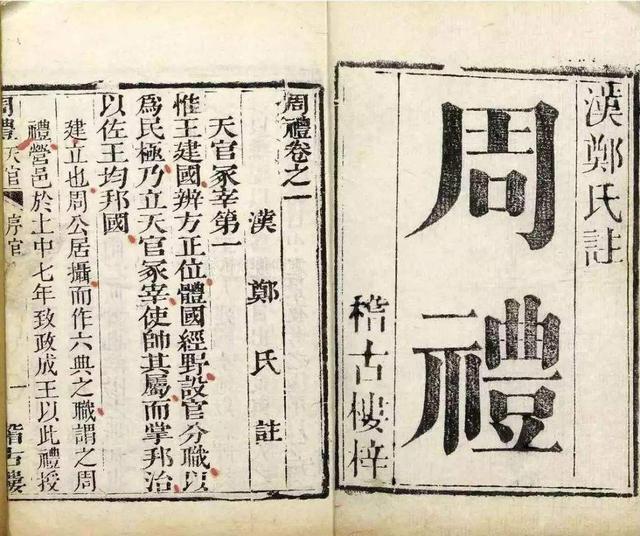 漢鄭氏註
周禮
稽古樓梓
周禮卷之一
漢鄭氏註
天官冢宰第一
惟王建國辨方正位體國經野設官分職以
為民極乃立天官冢宰使帥其屬而掌邦治
以佐王均邦國
建立也周公居攝而作六典之職謂之周
禮營邑於土中七年致政成王以此禮授
周禮天官 序官 一 稽古樓